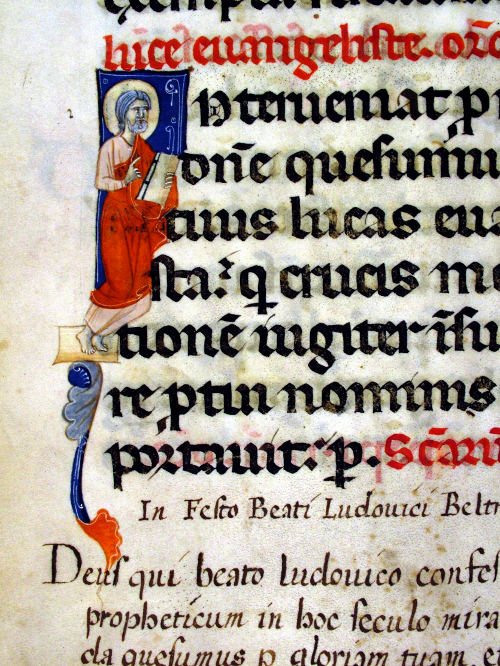 luce euangeliste. orõ
Nterueniat p
doñe quesumu
tuus lucas eua
sta: q crucis m
tionẽ iugiter ĩ su
re p tui nominis
portauit: p. Scãru
In Festo Beati Ludouici Beltr
Deus qui beato ludouico confes
propheticum in hoc seculo mira
da quesumus p gloriam tuam, e